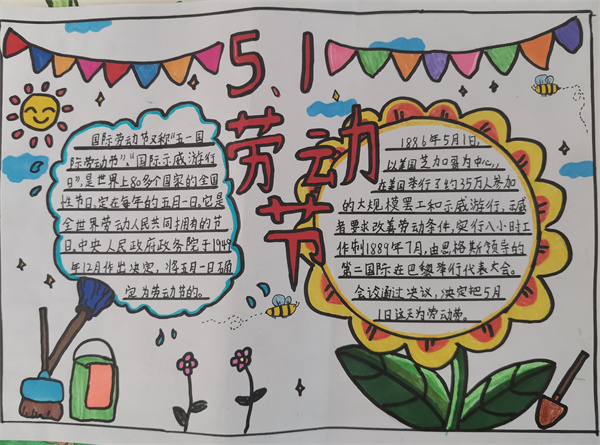 5.1
劳动
节
国际劳动节又称“五一国
际劳动节”、“国际示威游行
日”,是世界上80多个国家的全国
性节日,定在每年的五月一日,它是
全世界劳动人民共同拥有的节
日,中央人民政府政务院于1949
年12月作出决定,将五月一日确
定为劳动节的。
1886年5月1日,
以美国芝加哥为中心,
在美国举行了约35万人参加
的大规模罢工和示威游行,示威
者要求改善劳动条件,实行八小时工
作制1889年7月,由恩格斯领导的
第二国际在巴黎举行代表大会。
会议通过决议,决定把5月
1日这天为劳动节。